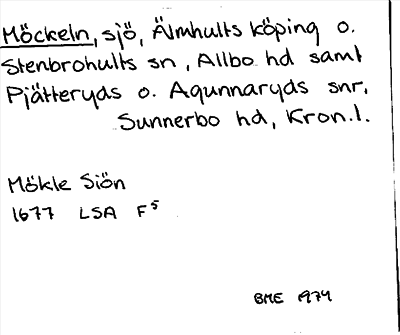 Möckeln, sjö, Älmhults köping o.
Stenbrohults sn, Allbo hd samt
Pjätteryds o. Agunnaryds snr,
Sunnerbo hd, Kron.l.
Mökle Siön
1677 LSA F5
BME 1974